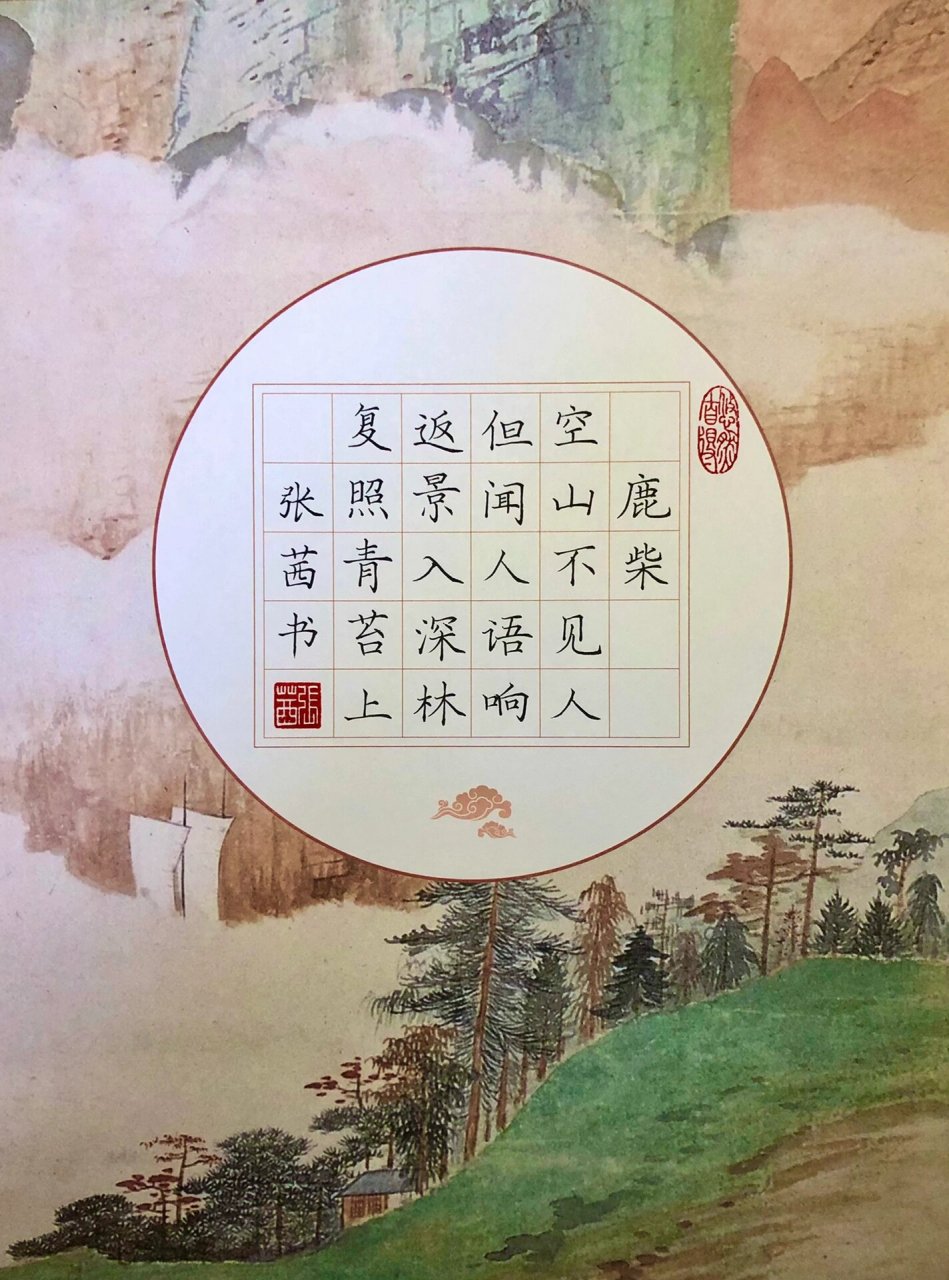 鹿柴
空山不见人
但闻人语响
返景入深林
复照青苔上
张茜书
張茜